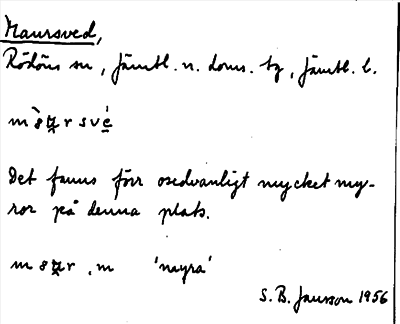 Maursved,
Rödöns sn, Jämtl. n. doms. tg, Jämtl. l.
Det fanns förr osedvanligt mycket my-
ror på denna plats.
m 'myra'
S. B. Jansson 1956